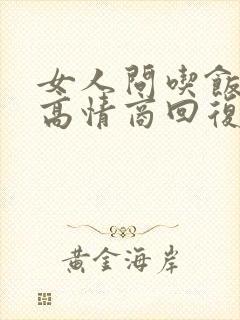 女人問喫飯
高情商回復
黃金海岸